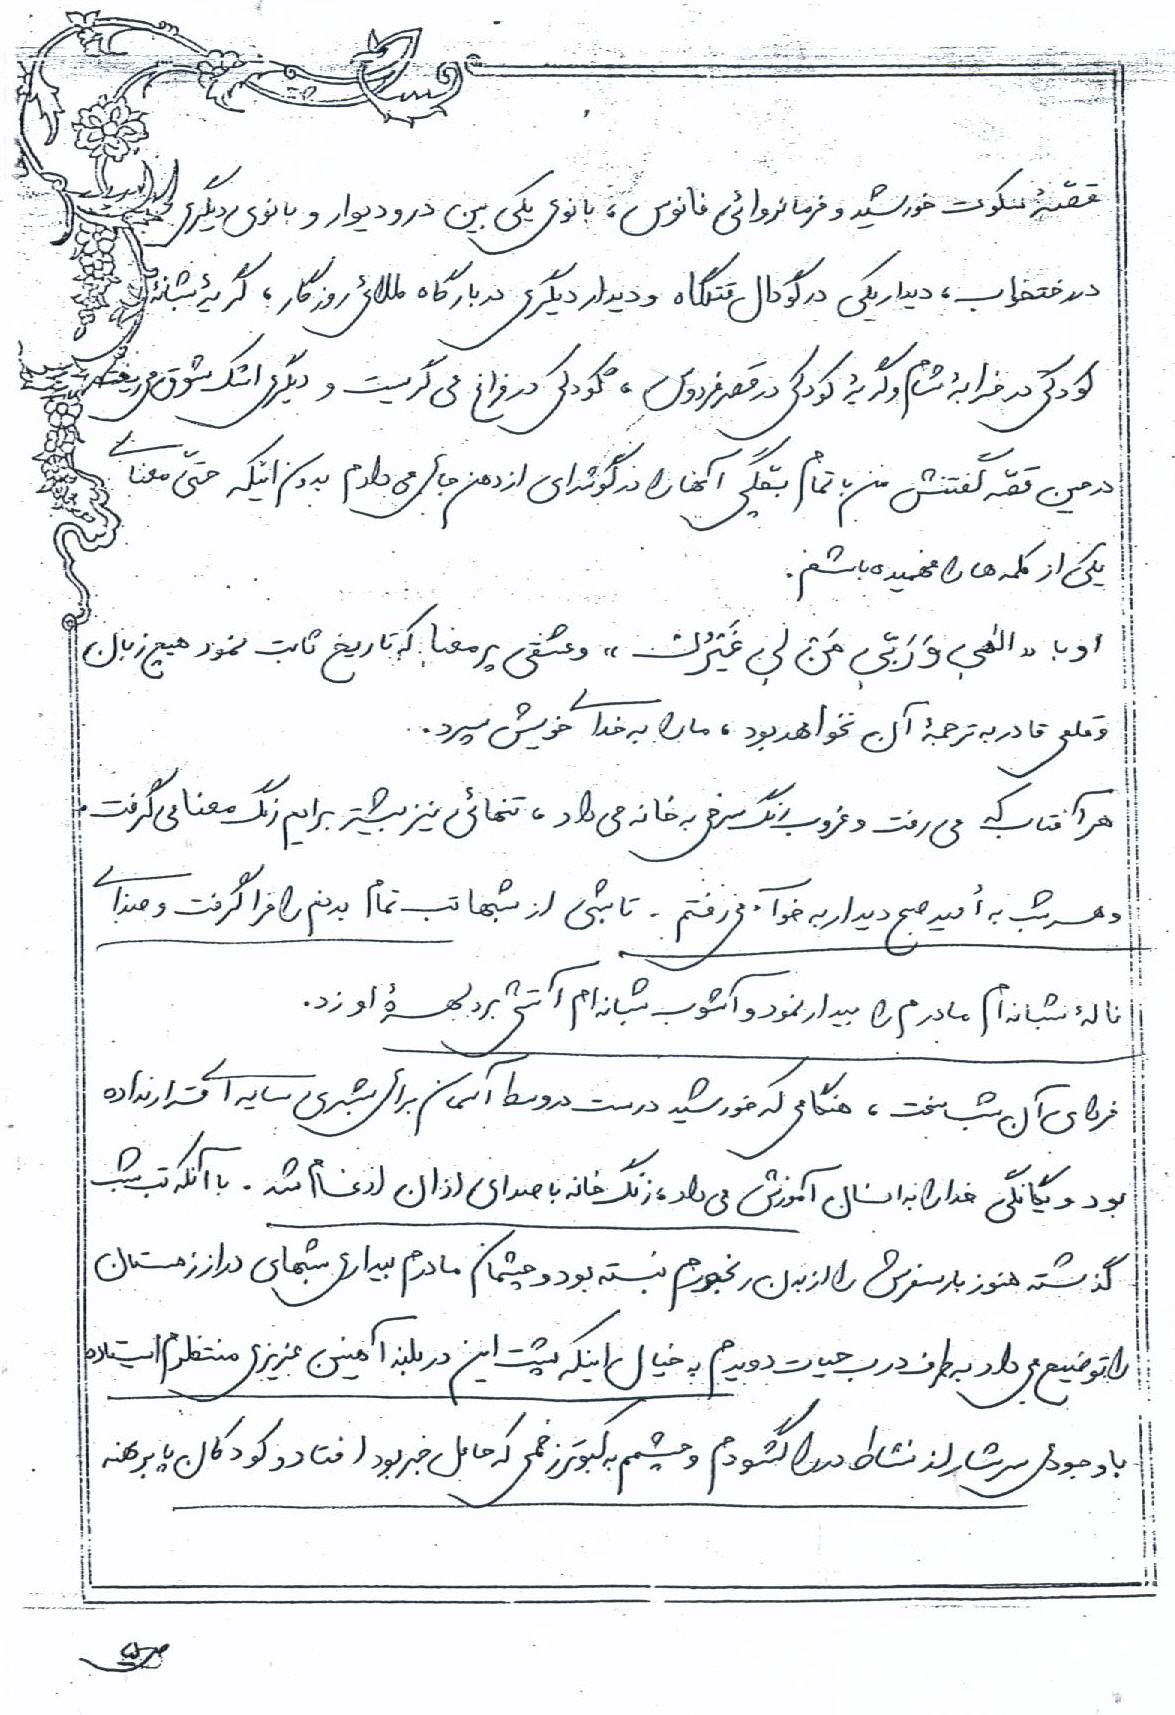 قصّهٔ سکوت خورشید و فرمانروائی فانوس، بانوی یکی بین در و دیوار و بانوی دیگری
در رختخواب، دیدار یکی در گودال قتلگاه و دیدار دیگری در بارگاه طلائی روزگار، گریهٔ شبانهٔ
کودکی در خرابهٔ شام و گریهٔ کودکی در قصر فردوس، کودکی در فراغ می گریست و دیگری اشک شوق می ریخت
در حین قصّه گفتنش من با تمام بچگی آنها را در گوشه‌ای از ذهن جای می دادم بدون اینکه حتّی معنای
یکی از کلمه ها را فهمیده باشم.
او با «الهی وَ رَبّی مَن لی غَیرُک» و عشقی پر معنا که تاریخ ثابت نمود هیچ زبان
و قلمی قادر به ترجمهٔ آن نخواهد بود، ما را به خدای خویش سپرد.
هر آفتاب که می رفت و غروب رنگ سرخی به خانه می داد، تنهائی نیز بیشتر برایم رنگ معنا می گرفت.
و هر شب به اُمید صبح دیدار به خواب می رفتم. تا شبی از شبها تب تمام بدنم را فرا گرفت و صدای
نالهٔ شبانه ام مادرم را بیدار نمود و آشوب شبانه ام آتشی بر چهرهٔ او زد.
فردای آن شب سخت، هنگامی که خورشید درست در وسط آسمان برای بشری سایه ای قرار نداده
بود و یگانگی خدا را به انسان آموزش می داد، زنگ خانه با صدای اذان ادغام شد. با آنکه تب شب
گذشته هنوز بار سفرش را از بدن رنجورم نبسته بود و چشمان مادرم بیداری شبهای دراز زمستان
را توضیح می داد به طرف درب حیات دویدم به خیال اینکه پشت این در بلند آهنین عزیزی منتظرم ایستاده
با وجودی سرشار از نشاط در را گشودم و چشمم به کبوتر زخمی که حامل خبر بود افتاد و کودکان پا برهنه